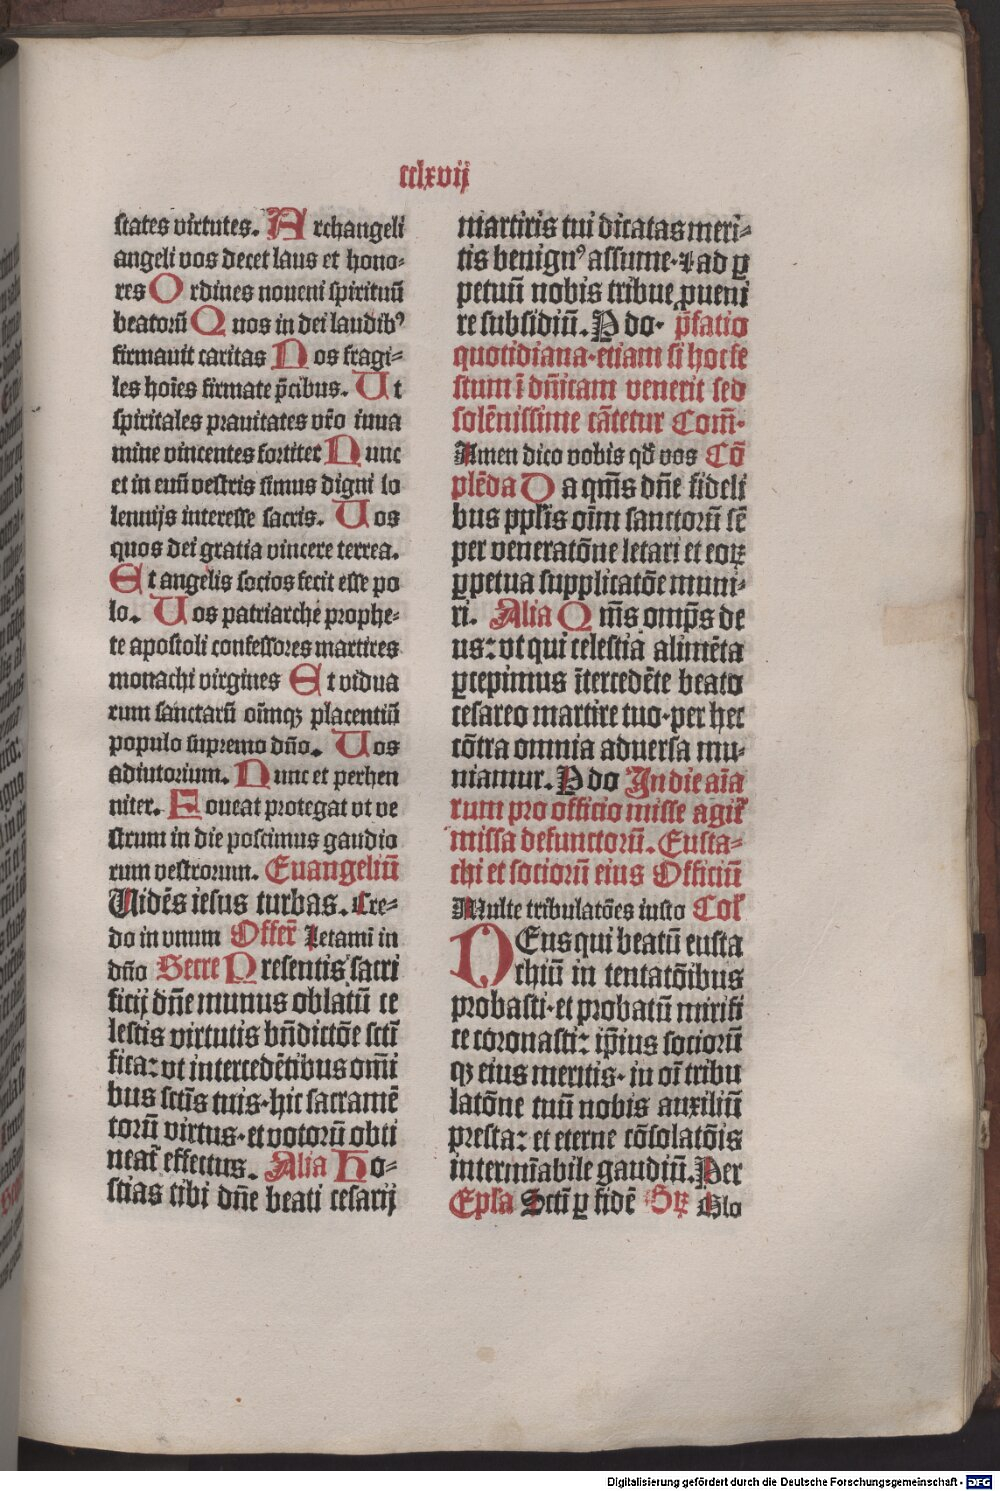 cclxvij
states virtutes. Archangeli
angeli vos decet laus et hono-
res Ordines noueni spirituū
beatorū Quos in dei laudibꝰ
firmauit caritas Nos fragi-
les hoīes firmate p̄cibus. Ut
spiritales prauitates vr̄o iuua
mine vincentes fortiter Nunc
et in euū vestris simus digni so
lennijs interesse sacris. Uos
quos dei gratia vincere terrea.
Et angelis socios fecit esse po
lo. Uos patriarche prophe-
te apostoli confessores martires
monachi virgines Et vidua
rum sanctarū oīmqꝫ placentiū
populo supremo dño. Uos
adiutorium. Nunc et perhen
niter. Foueat protegat vt ve
strum in die poscimus gaudio
rum vestrorum. Euangeliū
Uidēs iesus turbas. Cre-
do in vnum Offer̄ Letami in
dño Secre Presentis sacri
ficij dñe munus oblatū ce
lestis virtutis bñdictōe scti
fica: vt intercedētibus om̄i
bus sctīs tuis·hic sacramē
torū virtus·et votorū obti
neat̄ effectus. Alia Ho-
stias tibi dñe beati cesarij
martiris tui dicatas meri-
tis benignꝰ assume·⁊ ad ꝑ
petuū nobis tribue ꝓueni
re subsidiū. P do· p̄fatio
quotidiana·etiam si hoc fe
stum ī dñicam venerit sed
solēnissime cātetur Com̄·
Amen dico vobis qd̄ vos Cō
plēda Da qm̄s dñe fideli
bus pplis oīm sanctorū sē
per veneratōne letari et eoꝝ
ꝑpetua supplicatōe muni-
ri. Alia Qm̄s omp̄s de
us: vt qui celestia alimēta
ꝑcepimus ītercedēte beato
cesareo martire tuo·per hec
cōtra omnia aduersa mu-
niamur. P do In die aīa
rum pro officio misse agit̄
missa defunctorū. Eusta-
chi et sociorū eius Officiū
Multe tribulatōes iusto Col̄
DEus qui beatū eusta
chiū in tentatōibus
probasti·et probatū mirifi
ce coronasti: ip̄ius sociorū
qꝫ eius meritis·in oī tribu
latōne tuū nobis auxiliū
presta: et eterne cōsolatōis
intermīabile gaudiū. Per
Epla Scti ꝑ fidē Gꝝ Glo
Digitalisierung gefördert durch die Deutsche Forschungsgemeinschaft - DFG